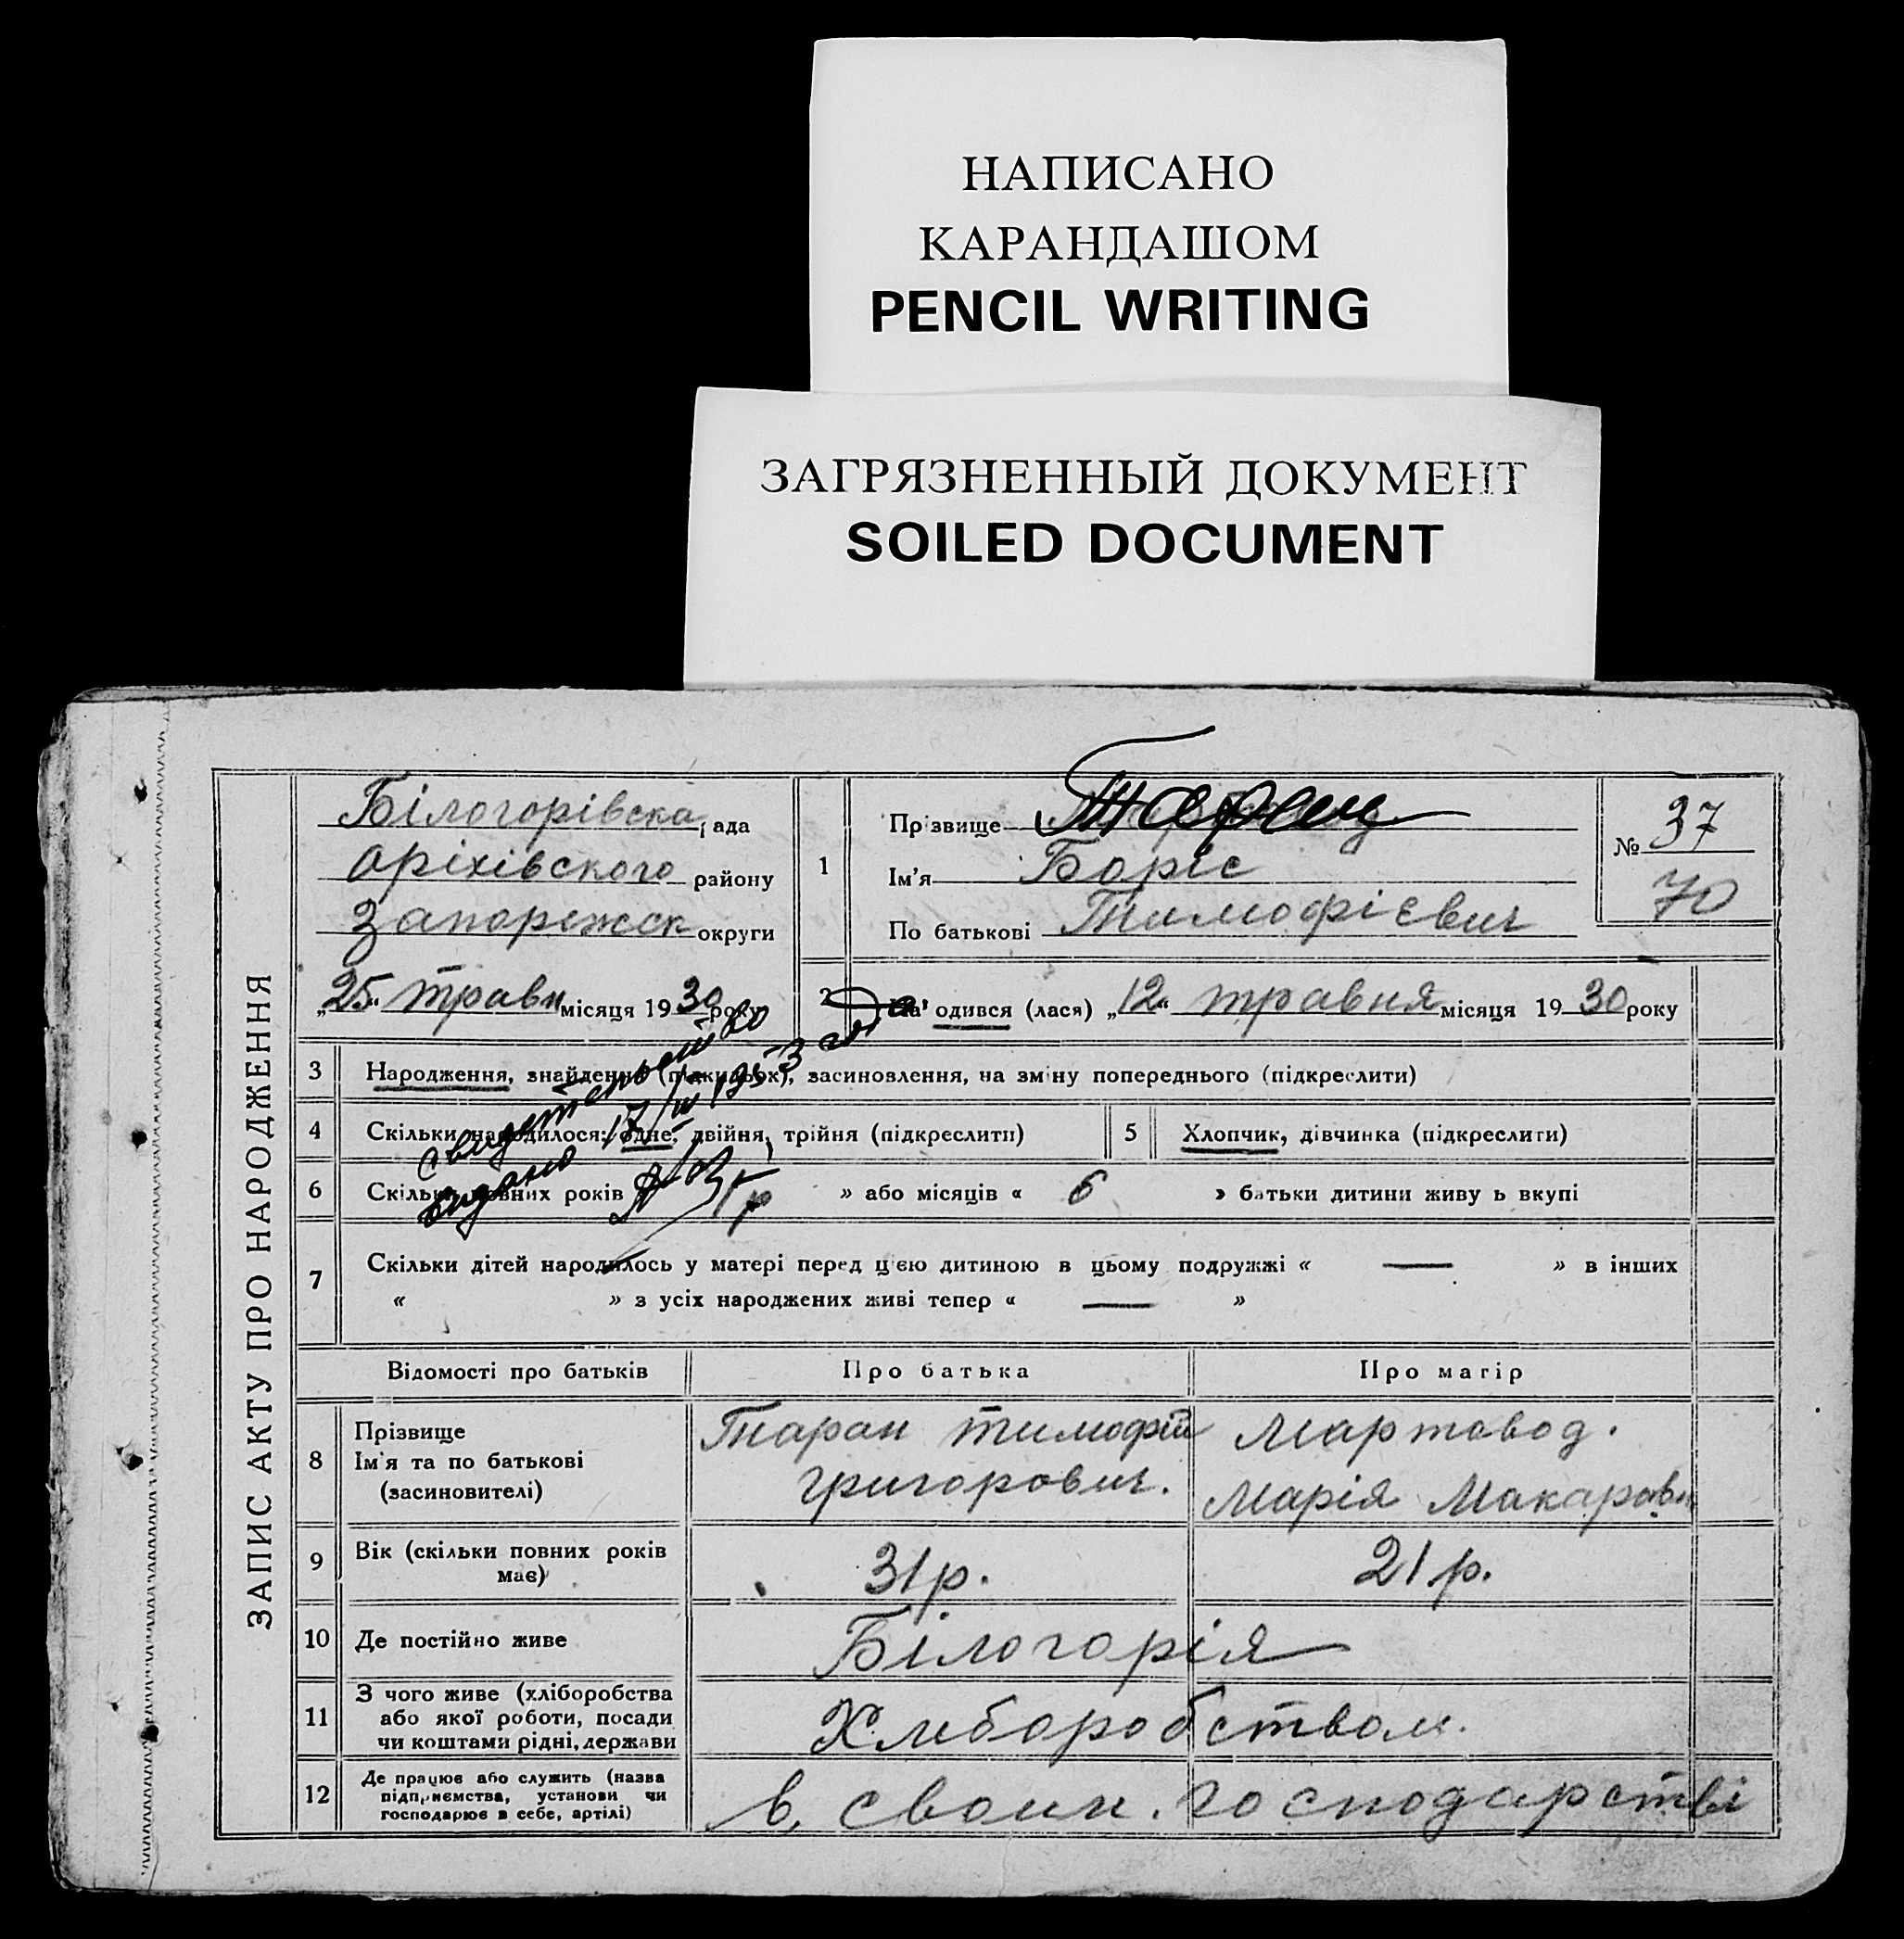 НАПИСАНО
КАРАНДАШОМ
PENCIL WRITING
ЗАГРЯЗНЕННЫЙ ДОКУМЕНТ
SOILED DOCUMENT
ЗАПИС АКТУ ПРО НАРОДЖЕННЯ
Білогорівска рада
Оріхівского району
Запорежск округи
„25“ травн місяця 1930 року
1
Прізвище Таран
Ім'я Боріс
По батькові Тимофієвич
№ 37
70
2 Народився (лася) „12“ травня місяця 1930 року
3 Народження, знайдення (підкидьох), засиновлення, на зміну попереднього (підкреслити)
4 Скільки народилося: одне, двійня, трійня (підкреслити)
5 Хлопчик, дівчинка (підкреслити)
6 Скільки повних років 1 р » або місяців « 6 » батьки дитини живуть вкупі
7 Скільки дітей народилось у матері перед цією дитиною в цьому подружжі « — » в інших
« » з усіх народжених живі тепер « — »
свидетельство
видано 17/IV 1953 года
Відомості про батьків Про батька Про матір
8 Прізвище
Ім'я та по батькові
(засиновителі)
Таран Тимофій
Григорович.
Мартовод.
Марія Макаровн
9 Вік (скільки повних років
має)
31 р.
21 р.
10 Де постійно живе
Білогорія
11 З чого живе (хліборобства
або якої роботи, посади
чи коштами рідні, держави
Хлиборобством.
12 Де працює або служить (назва
підприємства, установи чи
господарює в себе, артілі)
в своим. господарстві